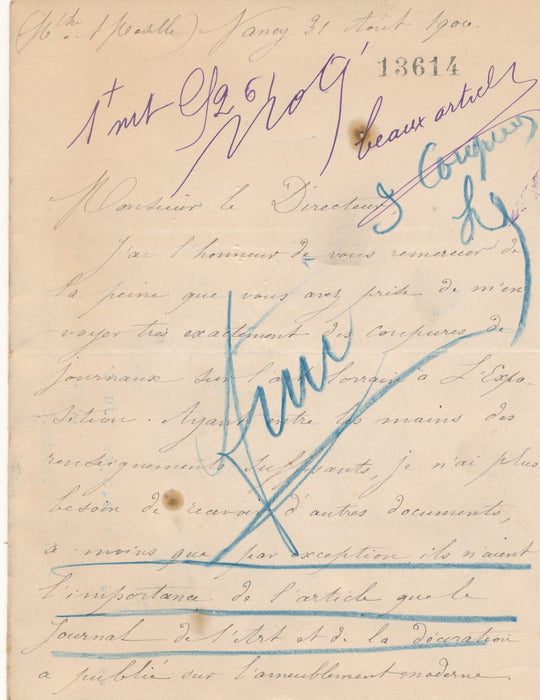 (Mthe. & Moselle) Nancy 31 Août 1900.
13614
beaux articles
Coupures
Monsieur le Directeur
J'ai l'honneur de vous remercier de
la peine que vous avez prise de m'en-
voyer très exactement des coupures de
journaux sur l'art lorrain à L'Expo-
sition. Ayant entre les mains des
renseignements suffisants, je n'ai plus
besoin de recevoir d'autres documents,
à moins que par exception ils n'aient
l'importance de l'article que le
Journal de l'Art et de la décoration
a publié sur l'ameublement moderne.